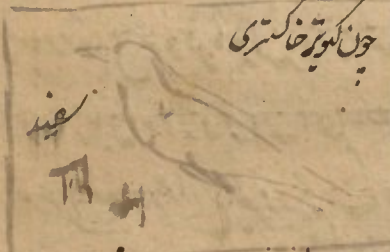 چون کبوتر خاکستری
سفید